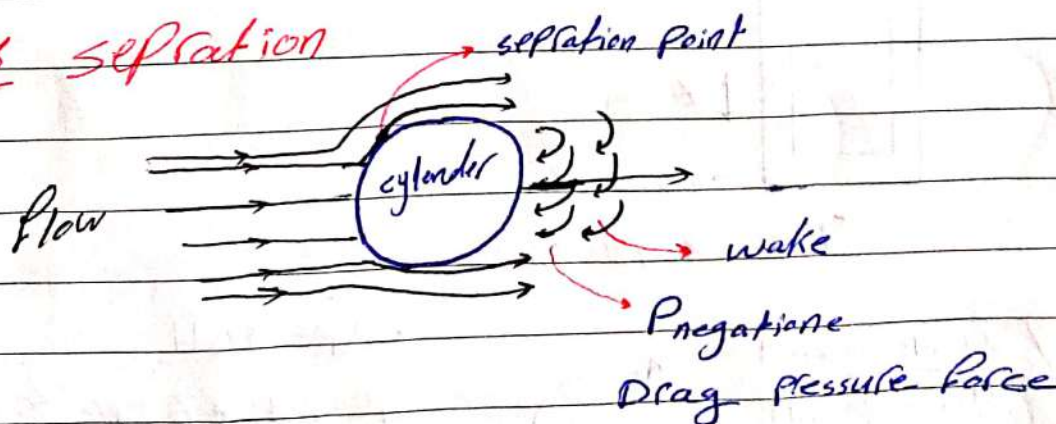 sepration
sepration point
cylender
flow
wake
Pnegatione
Drag pressure force